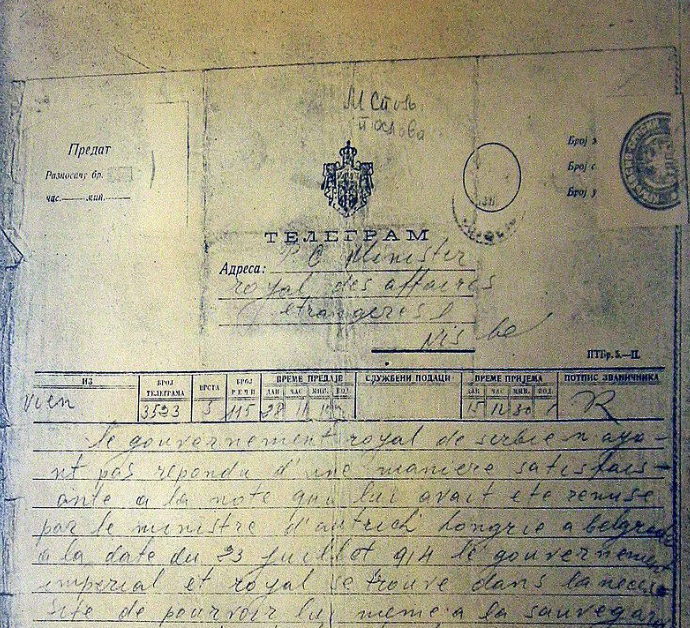 М Спољ.
послова
Предат
Разносачу бр.
час.——мин.——
Број
Број
Број
ТЕЛЕГРАМ
Адреса: Minister
royal des affaires
etrangeres
Nis be
ПТБр. 5.—II.
ИЗ
БРОЈ ТЕЛЕГРАМА
ВРСТА
БРОЈ РЕЧИ
ВРЕМЕ ПРЕДАЈЕ
ДАН ЧАС МИН. ПОД.
СЛУЖБЕНИ ПОДАЦИ
ВРЕМЕ ПРИЈЕМА
ДАН ЧАС МИН. ПОД.
ПОТПИС ЗВАНИЧНИКА
Vien 3523 5 115 28 11
le gouvernement royal de serbie n aya-
nt pas repondu d'une maniere satisfais-
ante a la note qui lui avait ete remise
par le ministre d'autrich hongrie a belgrade
a la date du 23 juillet 914 le gouvernement
imperial et royal se trouve dans la neces-
site de pourvoir lui meme a la sauvegar